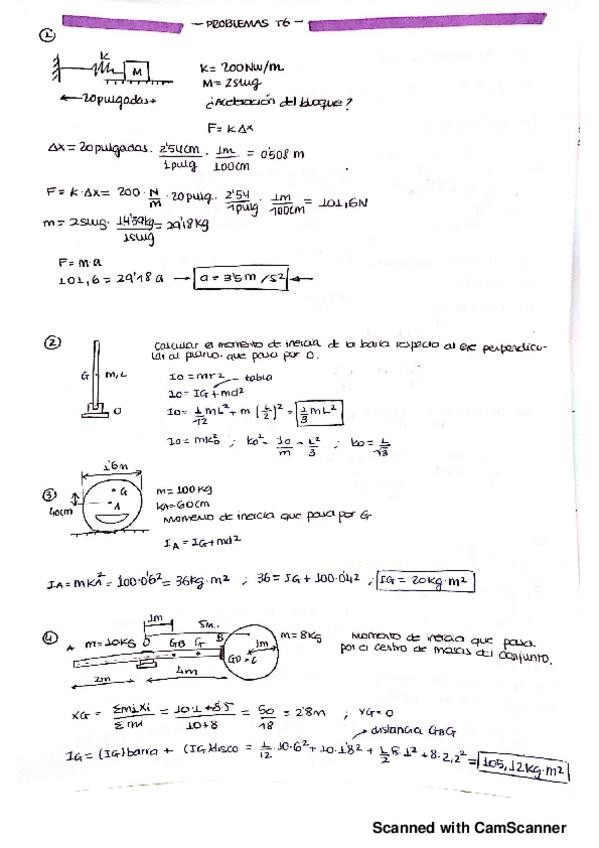 - PROBLEMAS T6 -
1
K
M
20 pulgadas
K = 200 Nw/m
M = 2 slug
¿Aceleración del bloque?
F = K Δx
Δx = 20 pulgadas · 2'54cm/1 pulg · 1m/100cm = 0'508 m
F = K · Δx = 200 · N/m · 20 pulg · 2'54/1 pulg · 1m/100cm = 101,6 N
m = 2 slug · 14'59kg/1 slug = 29'18 kg
F = m·a
101,6 = 29'18 a → a = 3'5 m/s²
2
Calcular el momento de inercia de la barra respecto al eje perpendicu-
lar al plano que pasa por O.
G m, L
O
Io = mr² - tabla
Io = IG + md²
Io = 1/12 mL² + m (L/2)² = 1/3 mL²
Io = mko² ; ko² = Io/m = L²/3 ; ko = L/√3
1'6m
3
40cm
G
A
m = 100 kg
KA = 60cm
Momento de inercia que pasa por G
IA = IG + md²
IA = mKA² = 100·0'6² = 36 kg·m² ; 36 = IG + 100·0'4² ; IG = 20 kg·m²
4
1m
5m.
A m = 10 kg O GB G B
m = 8 kg
1m
GD = C
2m
4m
Momento de inercia que pasa
por el centro de masas del conjunto.
XG = Σmi.xi/Σmi = 10·1+8·5/10+8 = 50/18 = 2'8m ; YG = 0
distancia GBG
IG = (IG)barra + (IG)disco = 1/12 · 10·6² + 10·1'8² + 1/2 8·1² + 8·2,2² = 105,12 kg·m²
Scanned with CamScanner